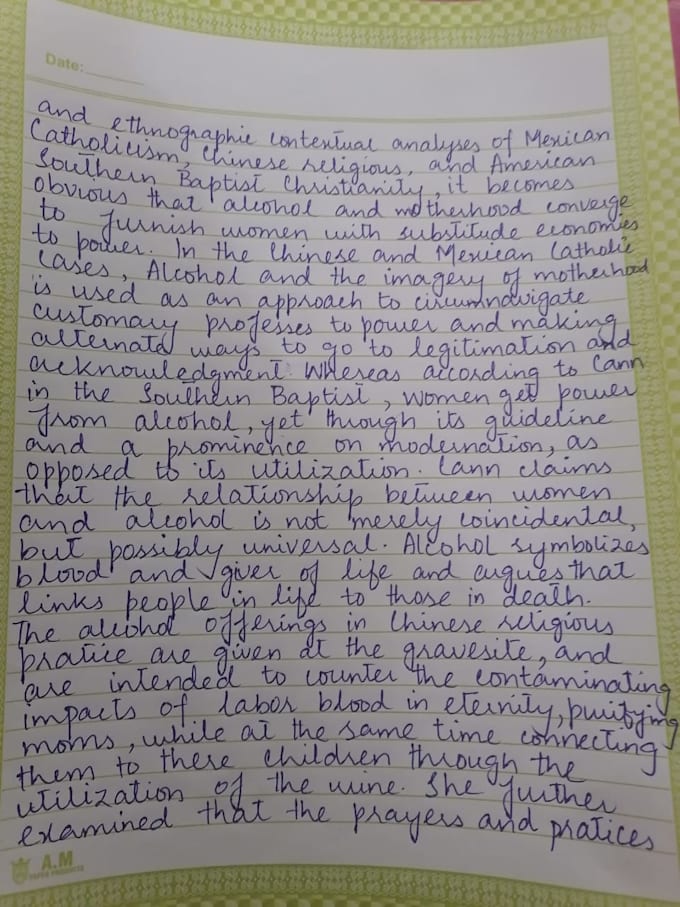 Date:
and ethnographic contextual analyses of Mexican
Catholicism, Chinese religious, and American
Southern Baptist Christianity, it becomes
obvious that alcohol and motherhood converge
to furnish women with substitude economies
to power. In the Chinese and Mexican Catholic
cases, Alcohol and the imagery of motherhood
is used as an approach to circumnavigate
customary professes to power and making
alternate ways to go to legitimation and
acknowledgment. Whereas according to Cann
in the Southern Baptist, women get power
from alcohol, yet through its guideline
and a prominence on modernation, as
opposed to its utilization. Cann claims
that the relationship between women
and alcohol is not merely coincidental,
but possibly universal. Alcohol symbolizes
blood and giver of life and argues that
links people in life to those in death.
The alcohol offerings in Chinese religious
pratice are given at the gravesite, and
are intended to counter the contaminating
impacts of labor blood in eternity, purifying
moms, while at the same time connecting
them to there children through the
utilization of the wine. She further
examined that the prayers and pratices
A.M
PAPER PRODUCTS